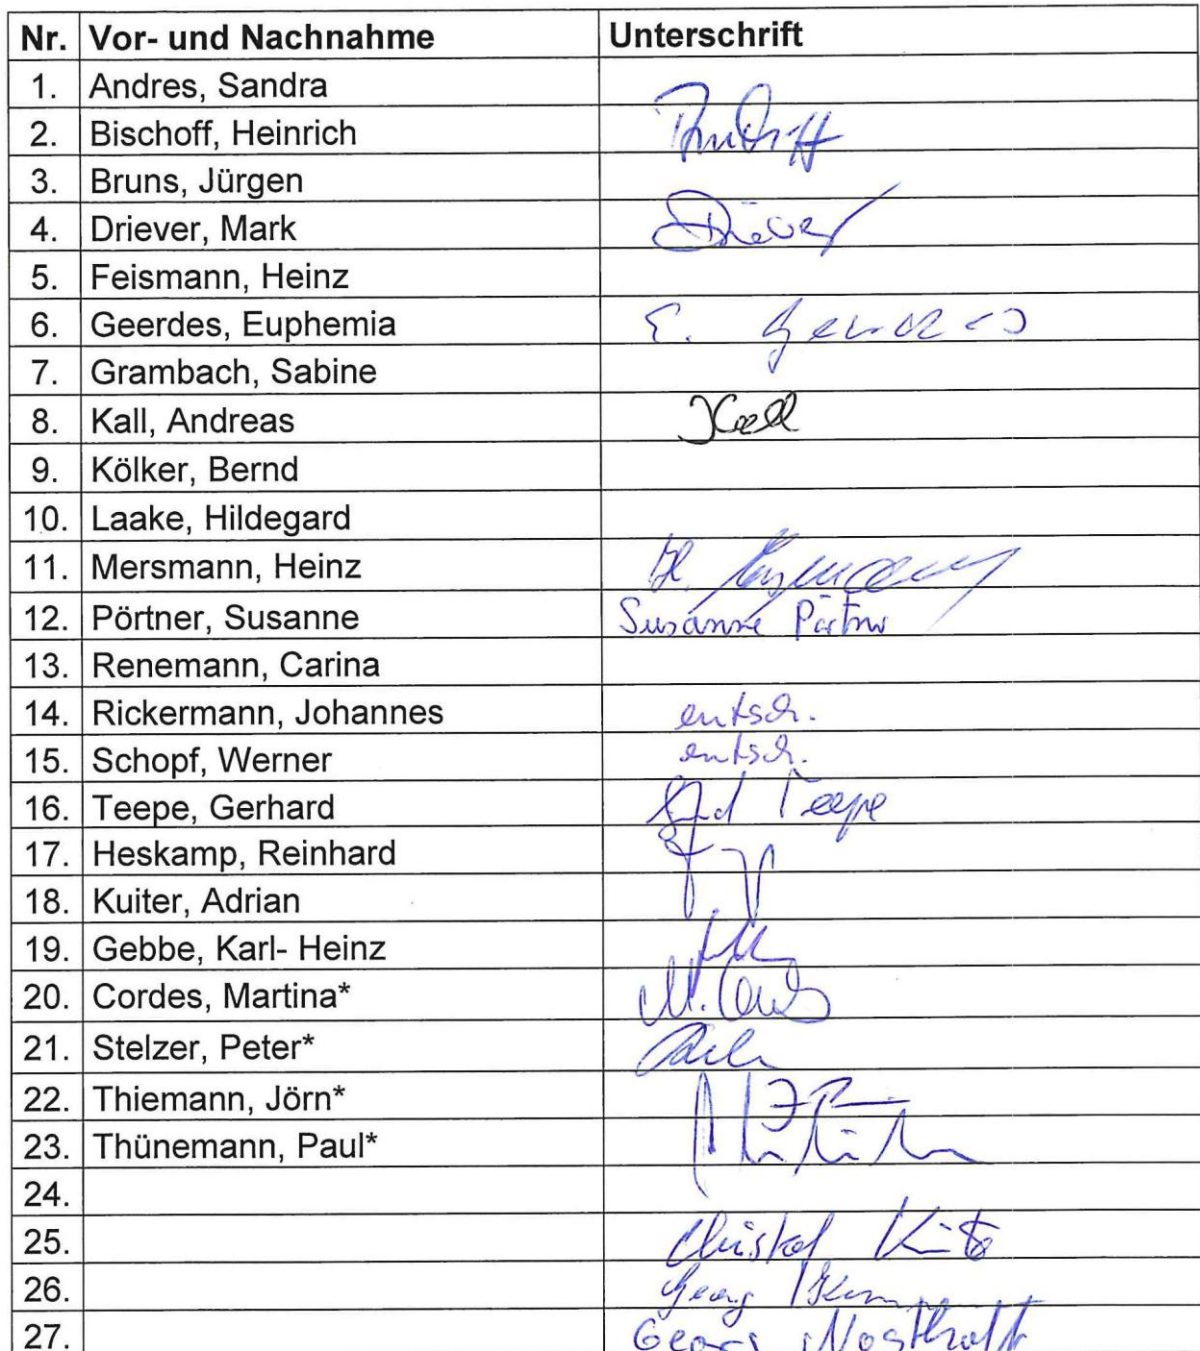 Nr. Vor- und Nachnahme Unterschrift
1. Andres, Sandra
2. Bischoff, Heinrich
3. Bruns, Jürgen
4. Driever, Mark Driever
5. Feismann, Heinz
6. Geerdes, Euphemia E. Geerdes
7. Grambach, Sabine
8. Kall, Andreas Kall
9. Kölker, Bernd
10. Laake, Hildegard
11. Mersmann, Heinz H.
12. Pörtner, Susanne Susanne Pörtner
13. Renemann, Carina
14. Rickermann, Johannes entsch.
15. Schopf, Werner entsch.
16. Teepe, Gerhard Teepe
17. Heskamp, Reinhard
18. Kuiter, Adrian
19. Gebbe, Karl- Heinz
20. Cordes, Martina* M. Cordes
21. Stelzer, Peter*
22. Thiemann, Jörn*
23. Thünemann, Paul*
24.
25. Christof
26. Georg
27. Georg